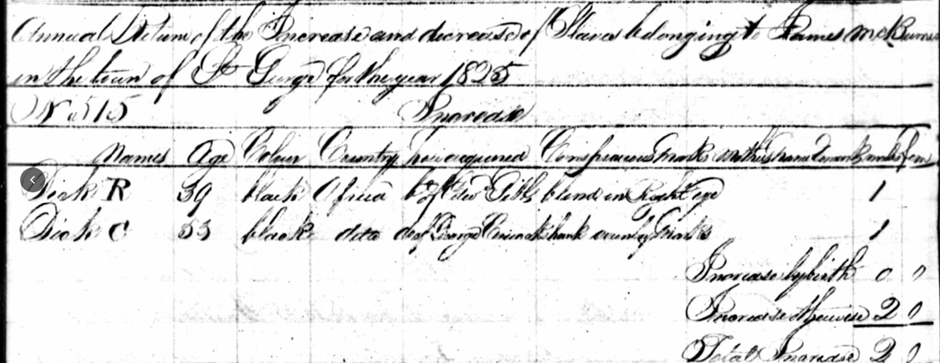 Annual Return of the Increase and decrease of Slaves belonging to James McBurnie
in the town of St Gorge for the year 1825
No 515 Increase
Names Age Colour Country how acquired Conspicuous Marks Mothers Name Remarks males fem
Dick R 39 black Africa bot of blind in Right eye 1
Dick C 33 black ditto do of George Cruickshank country Marks 1
Increase by birth 0 0
Increase otherwise 2 0
Total Increase 2 0